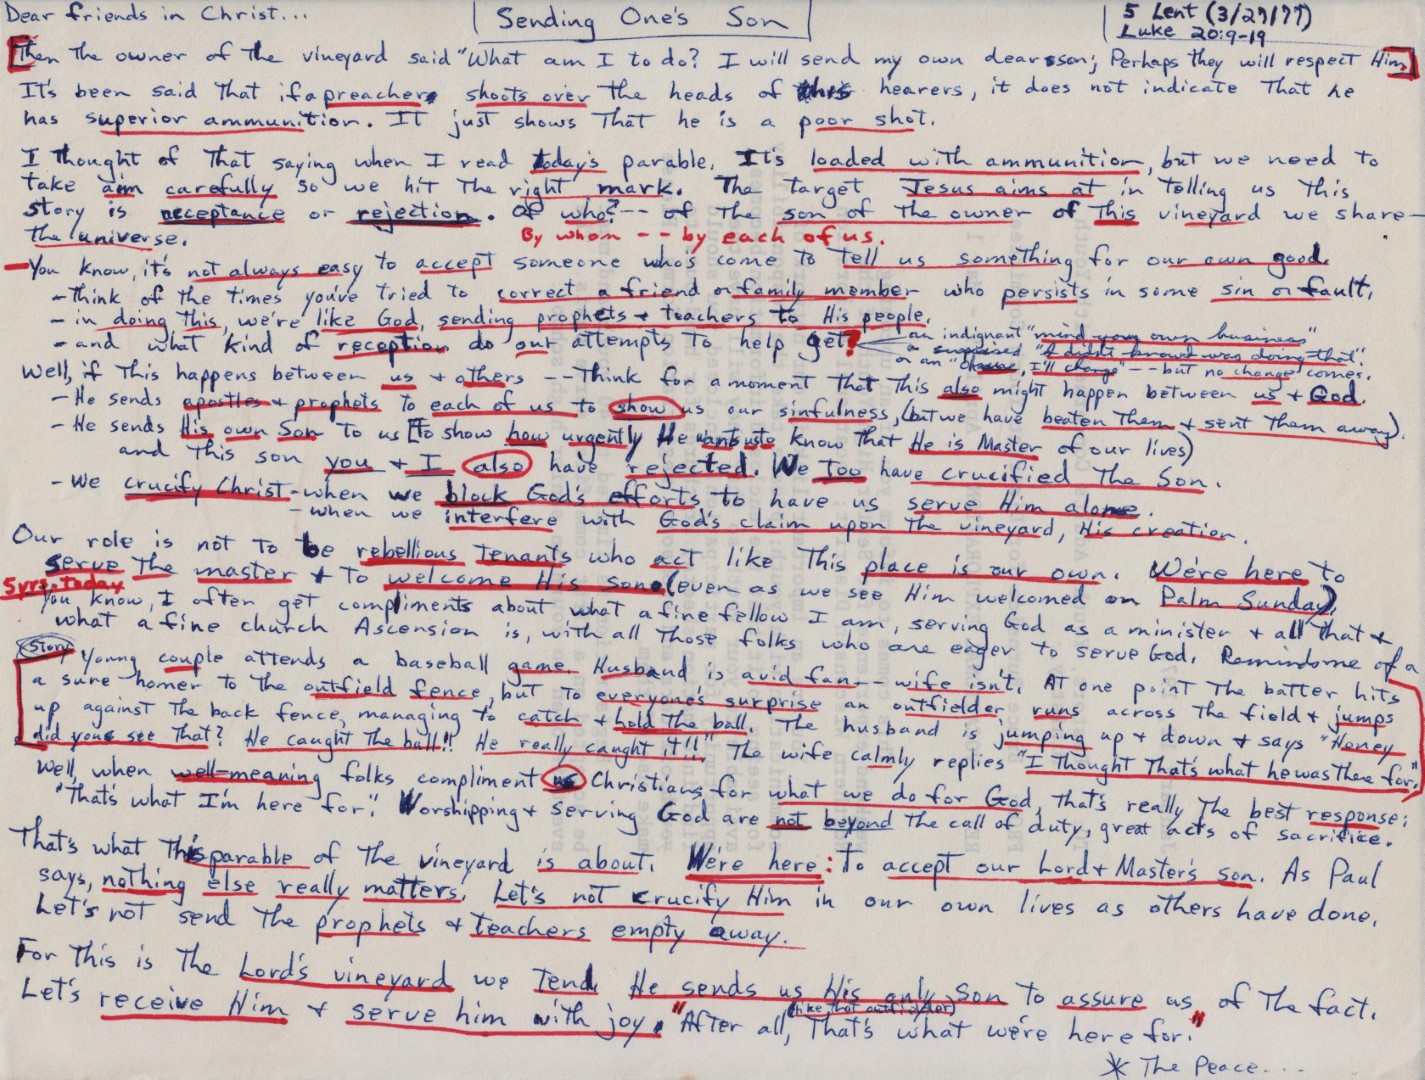 Dear friends in Christ...
Sending One's Son
5 Lent (3/27/77)
Luke 20:9-19
[Then the owner of the vineyard said "What am I to do? I will send my own dear son; Perhaps they will respect Him]
It's been said that if a preacher shoots over the heads of his hearers, it does not indicate that he
has superior ammunition. It just shows that he is a poor shot.
I thought of that saying when I read today's parable. It's loaded with ammunition, but we need to
take aim carefully so we hit the right mark. The target Jesus aims at in telling us this
story is acceptance or rejection. Of who? -- of the son of the owner of this vineyard we share--
the universe.
By whom -- by each of us.
- You know, it's not always easy to accept someone who's come to tell us something for our own good.
- Think of the times you've tried to correct a friend or family member who persists in some sin or fault,
- in doing this, we're like God, sending prophets + teachers to His people.
- and what kind of reception do our attempts to help get?
an indignant "mind your own business"
a "I didn't know I was doing that".
or an "I'll change" -- but no change comes.
Well, if this happens between us + others -- think for a moment that this also might happen between us + God.
- He sends apostles + prophets to each of us to show us our sinfulness, (but we have beaten them + sent them away).
- He sends His own Son to us [to show how urgently He wants us to know that He is Master of our lives)
and this son you + I also have rejected. We too have crucified the Son.
- We crucify Christ - when we block God's efforts to have us serve Him alone.
- when we interfere with God's claim upon the vineyard, His creation.
Our role is not to be rebellious tenants who act like this place is our own. We're here to
serve the master + to welcome His son. (even as we see Him welcomed on Palm Sunday)
5 yrs. today
You know, I often get compliments about what a fine fellow I am, serving God as a minister + all that +
what a fine church Ascension is, with all those folks who are eager to serve God. Reminds me of a
Story
Young couple attends a baseball game. Husband is avid fan -- wife isn't. At one point the batter hits
a sure homer to the outfield fence, but to everyone's surprise an outfielder runs across the field + jumps
up against the back fence, managing to catch + hold the ball. The husband is jumping up + down + says "Honey
did you see that? He caught the ball!! He really caught it!!" The wife calmly replies "I thought that's what he was there for."
Well, when well-meaning folks compliment us Christians for what we do for God, that's really the best response:
"That's what I'm here for". Worshipping + serving God are not beyond the call of duty, great acts of sacrifice.
That's what this parable of the vineyard is about. We're here: to accept our Lord + Master's son. As Paul
says, nothing else really matters. Let's not crucify Him in our own lives as others have done.
Let's not send the prophets + teachers empty away.
For this is the Lord's vineyard we tend. He sends us His only Son to assure us of the fact.
Let's receive Him + serve him with joy. "After all, (like that outfielder) that's what we're here for."
* The Peace...